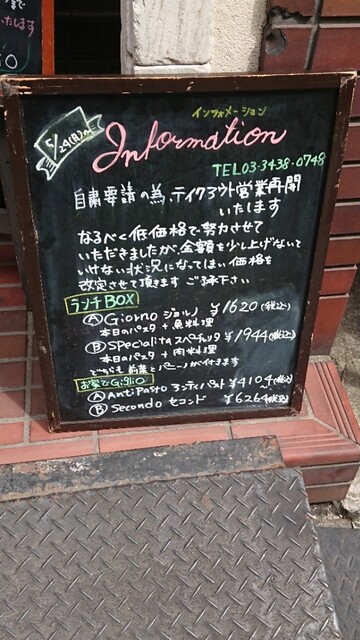 5/24(月)〜
インフォメーション
Information
TEL03-3438-0748
自粛要請の為、テイクアウト営業再開
いたします
なるべく低価格で努力させて
いただきましたが、金額を少し上げないで
いけない状況になってしまい価格を
改定させて頂きます ご了承下さい
ランチBOX
Ⓐ Giorno ジョルノ ¥1620(税込)
本日のパスタ + 魚料理
Ⓑ Specialita スペチャリタ ¥1944(税込)
本日のパスタ + 肉料理
どちらも前菜とパーネが付きます
お家でGiglio
Ⓐ Antipasto アンティパスト ¥4104(税込)
Ⓑ Secondo セコンド ¥6264(税込)
いたします